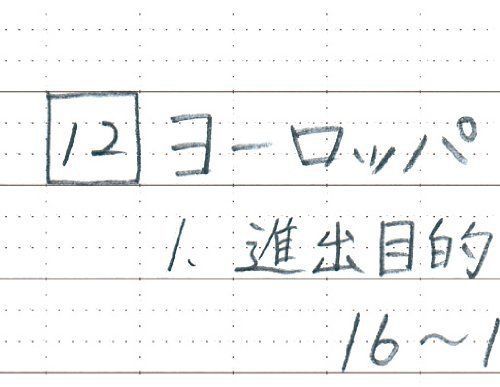 12 ヨーロッパ
1、進出目的
16〜1